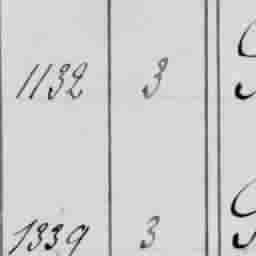 1132 3
1339 3